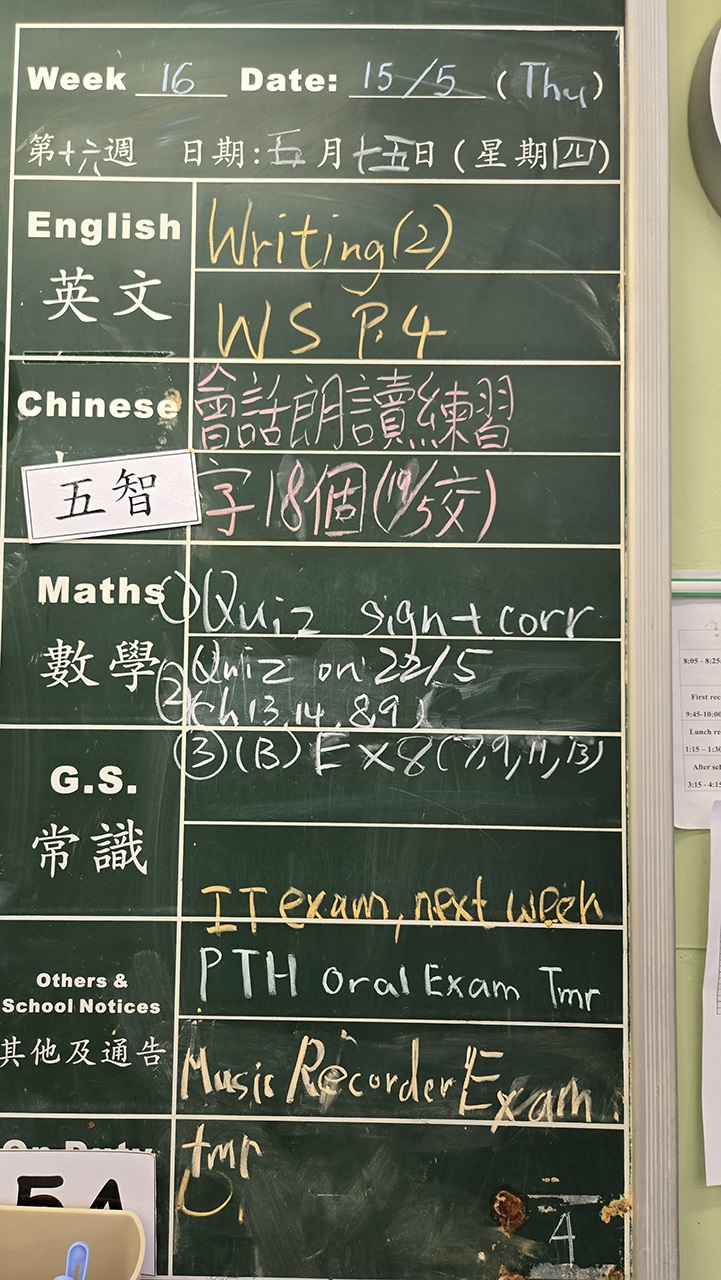 Week 16 Date: 15/5 (Thu)
第十六週 日期:五月十五日(星期四)
English
英文
Writing(2)
WS P.4
Chinese
會話朗讀練習
五智
字18個(19/5交)
Maths
數學
①Quiz sign+corr
②Quiz on 22/5
(ch 13,14,8,9)
③(B) Ex8(7,9,11,13)
G.S.
常識
IT exam, next week
Others &
School Notices
其他及通告
PTH Oral Exam Tmr
Music Recorder Exam
tmr
On Duty
5A
4
8:05 - 8:25
First rec
9:45-10:00
Lunch re
1:15 - 1:30
After sc
3:15 - 4:15